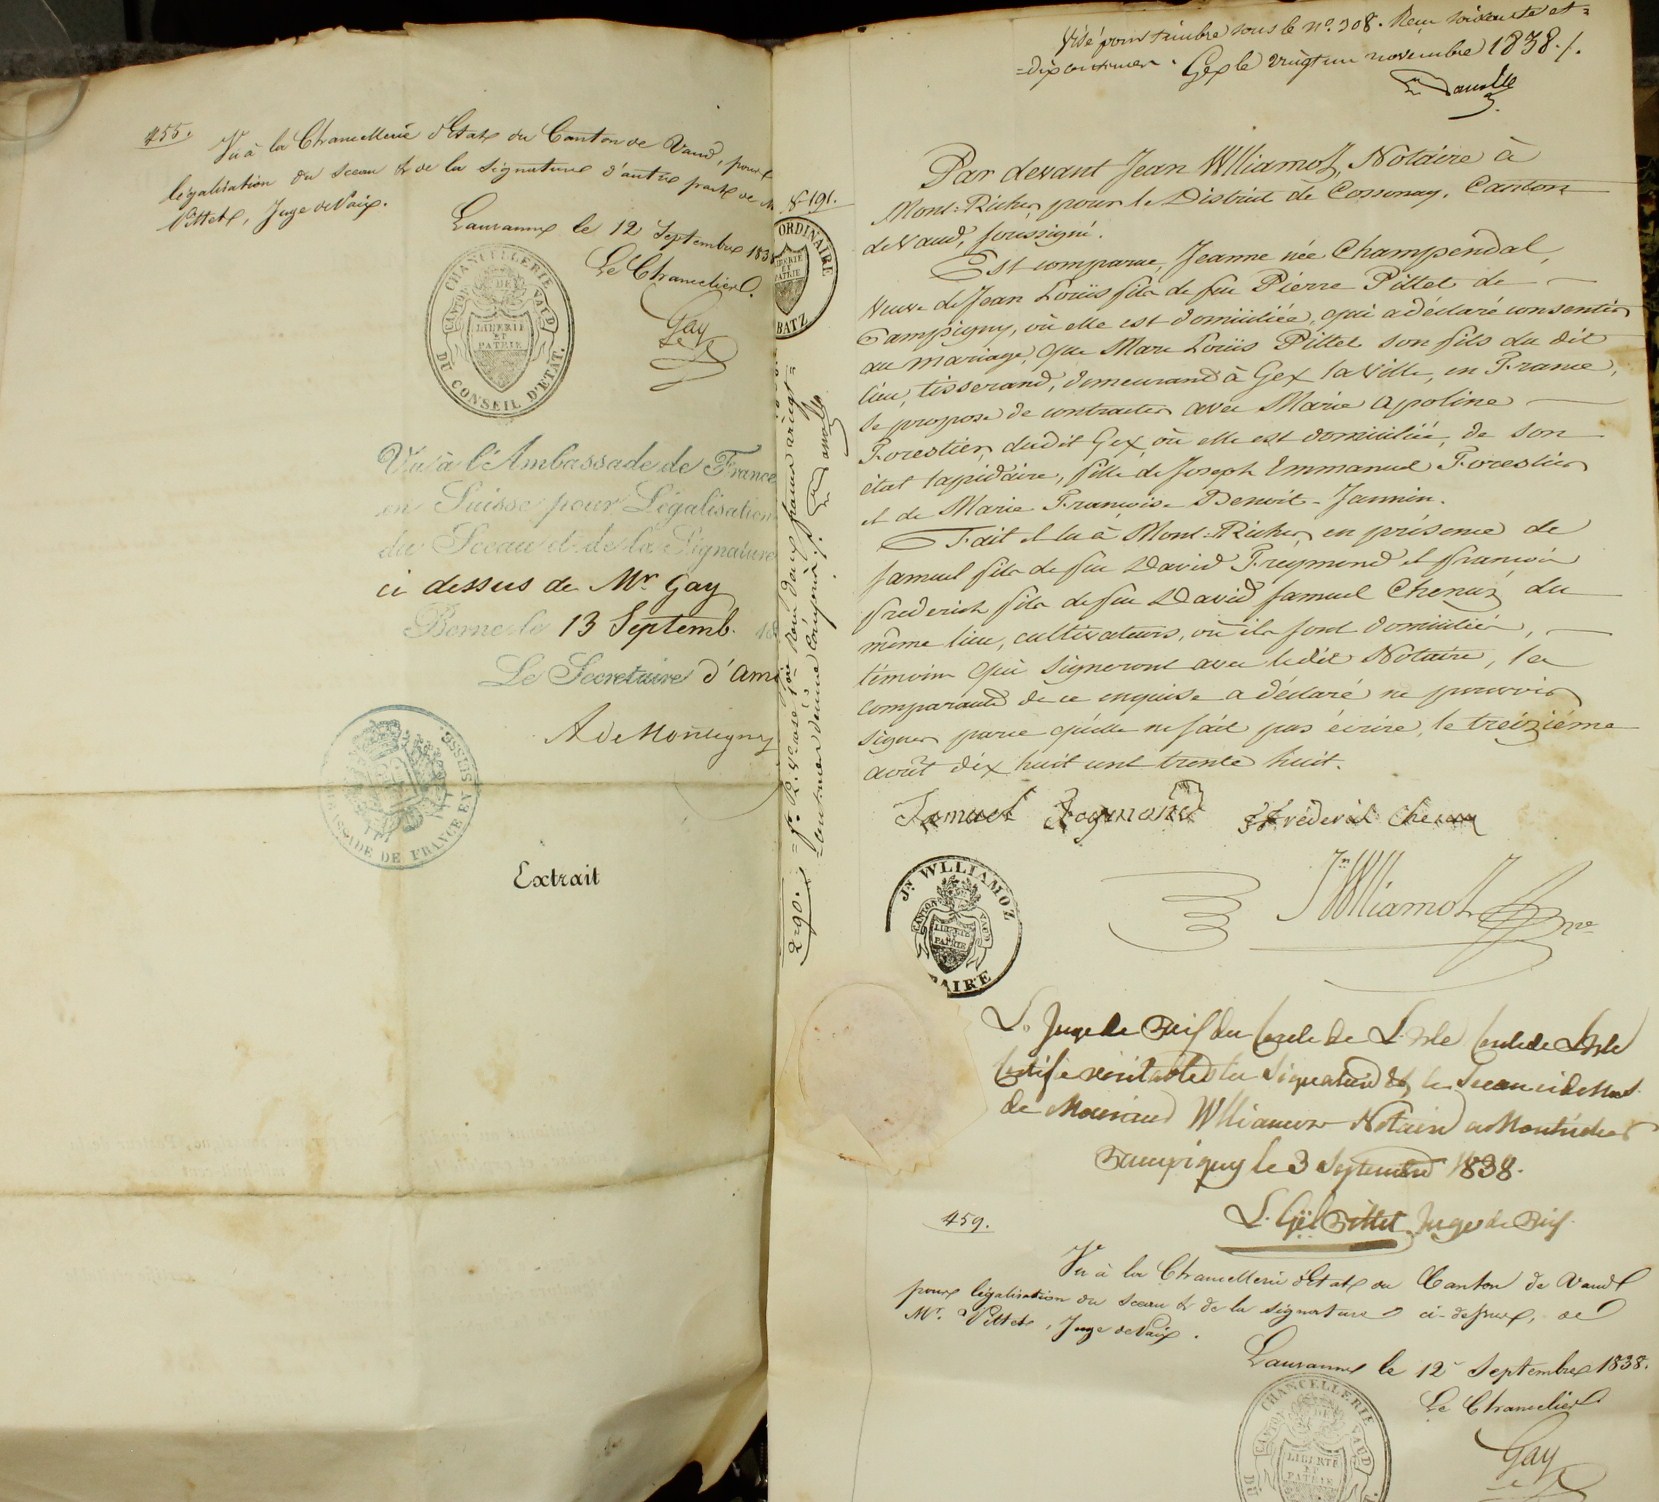 455.
Vu à la Chancellerie d'Etat du Canton de Vaud, pour
légalisation du sceau & de la signature d'autre part de M
Pittet, Juge de Paix.
Lausanne le 12 Septembre 1838
Le Chancelier.
Gay
CHANCELLERIE
CANTON DE VAUD
LIBERTE
ET
PATRIE
DU CONSEIL D'ETAT.
Vu à l'Ambassade de France
en Suisse pour Légalisation
du Sceau et de la Signature
ci dessus de Mr Gay
Berne le 13 Septemb. 18
Le Secretaire d'Am
A de Montigny
AMBASSADE DE FRANCE EN SUISSE
Extrait
8-191.
ORDINAIRE
LIBERTE
ET
PATRIE
BATZ
Visé pour timbre sous le no. 308. Reçu soixante et=
=dix centimes. Gex le vingt un novembre 1838./.
Par devant Jean Wlliamoz, Notaire à
Mont-Richer, pour le District de Cossonay, Canton
de Vaud, soussigné.
Est comparue, Jeanne née Champendal,
veuve de Jean Louis fils de feu Pierre Pittet de
Pampigny, où elle est domiciliée, qui a déclaré consentir
au mariage, que Marc Louis Pittet son fils du dit
lieu, tisserand, demeurand à Gex la Ville, en France,
se propose de contracter avec Marie Apoline
Forestier, dudit Gex, où elle est domiciliée, de son
état lapidaire, fille de Joseph Emmanuel Forestier
et de Marie Françoise Benoit-Jannin.
Fait et lu à Mont-Richer, en présence de
Samuel fils de feu David Freymond et François
frederich fils de feu David Samuel Chenuz du
même lieu, cultivateurs, où ils sont domiciliés,
témoins qui signeront avec ledit Notaire, la
comparante de ce enquise a déclaré ne pouvoir
signer parce qu'elle ne sait pas écrire, le treizième
août dix huit cent trente huit.
Samuel Freymond Frédérich Chenuz
Jn Wlliamoz nre
Jn WLLIAMOZ
CANTON DE VAUD
LIBERTE
ET
PATRIE
NOTAIRE
Le Juge de Paix du Cercle de L'Isle
Certifie véritables la Signature & le Sceau ci dessus
de Monsieur Wlliamoz Notaire à Montricher
Pampigny le 3 Septembre 1838.
L. Gël Pittet Juge de Paix.
459.
Vu à la Chancellerie d'Etat du Canton de Vaud
pour légalisation du sceau & de la signature ci-dessus, de
Mr. Pittet, Juge de Paix.
Lausanne le 12 Septembre 1838.
Le Chancelier
Gay
CHANCELLERIE
CANTON DE VAUD
LIBERTE
ET
PATRIE